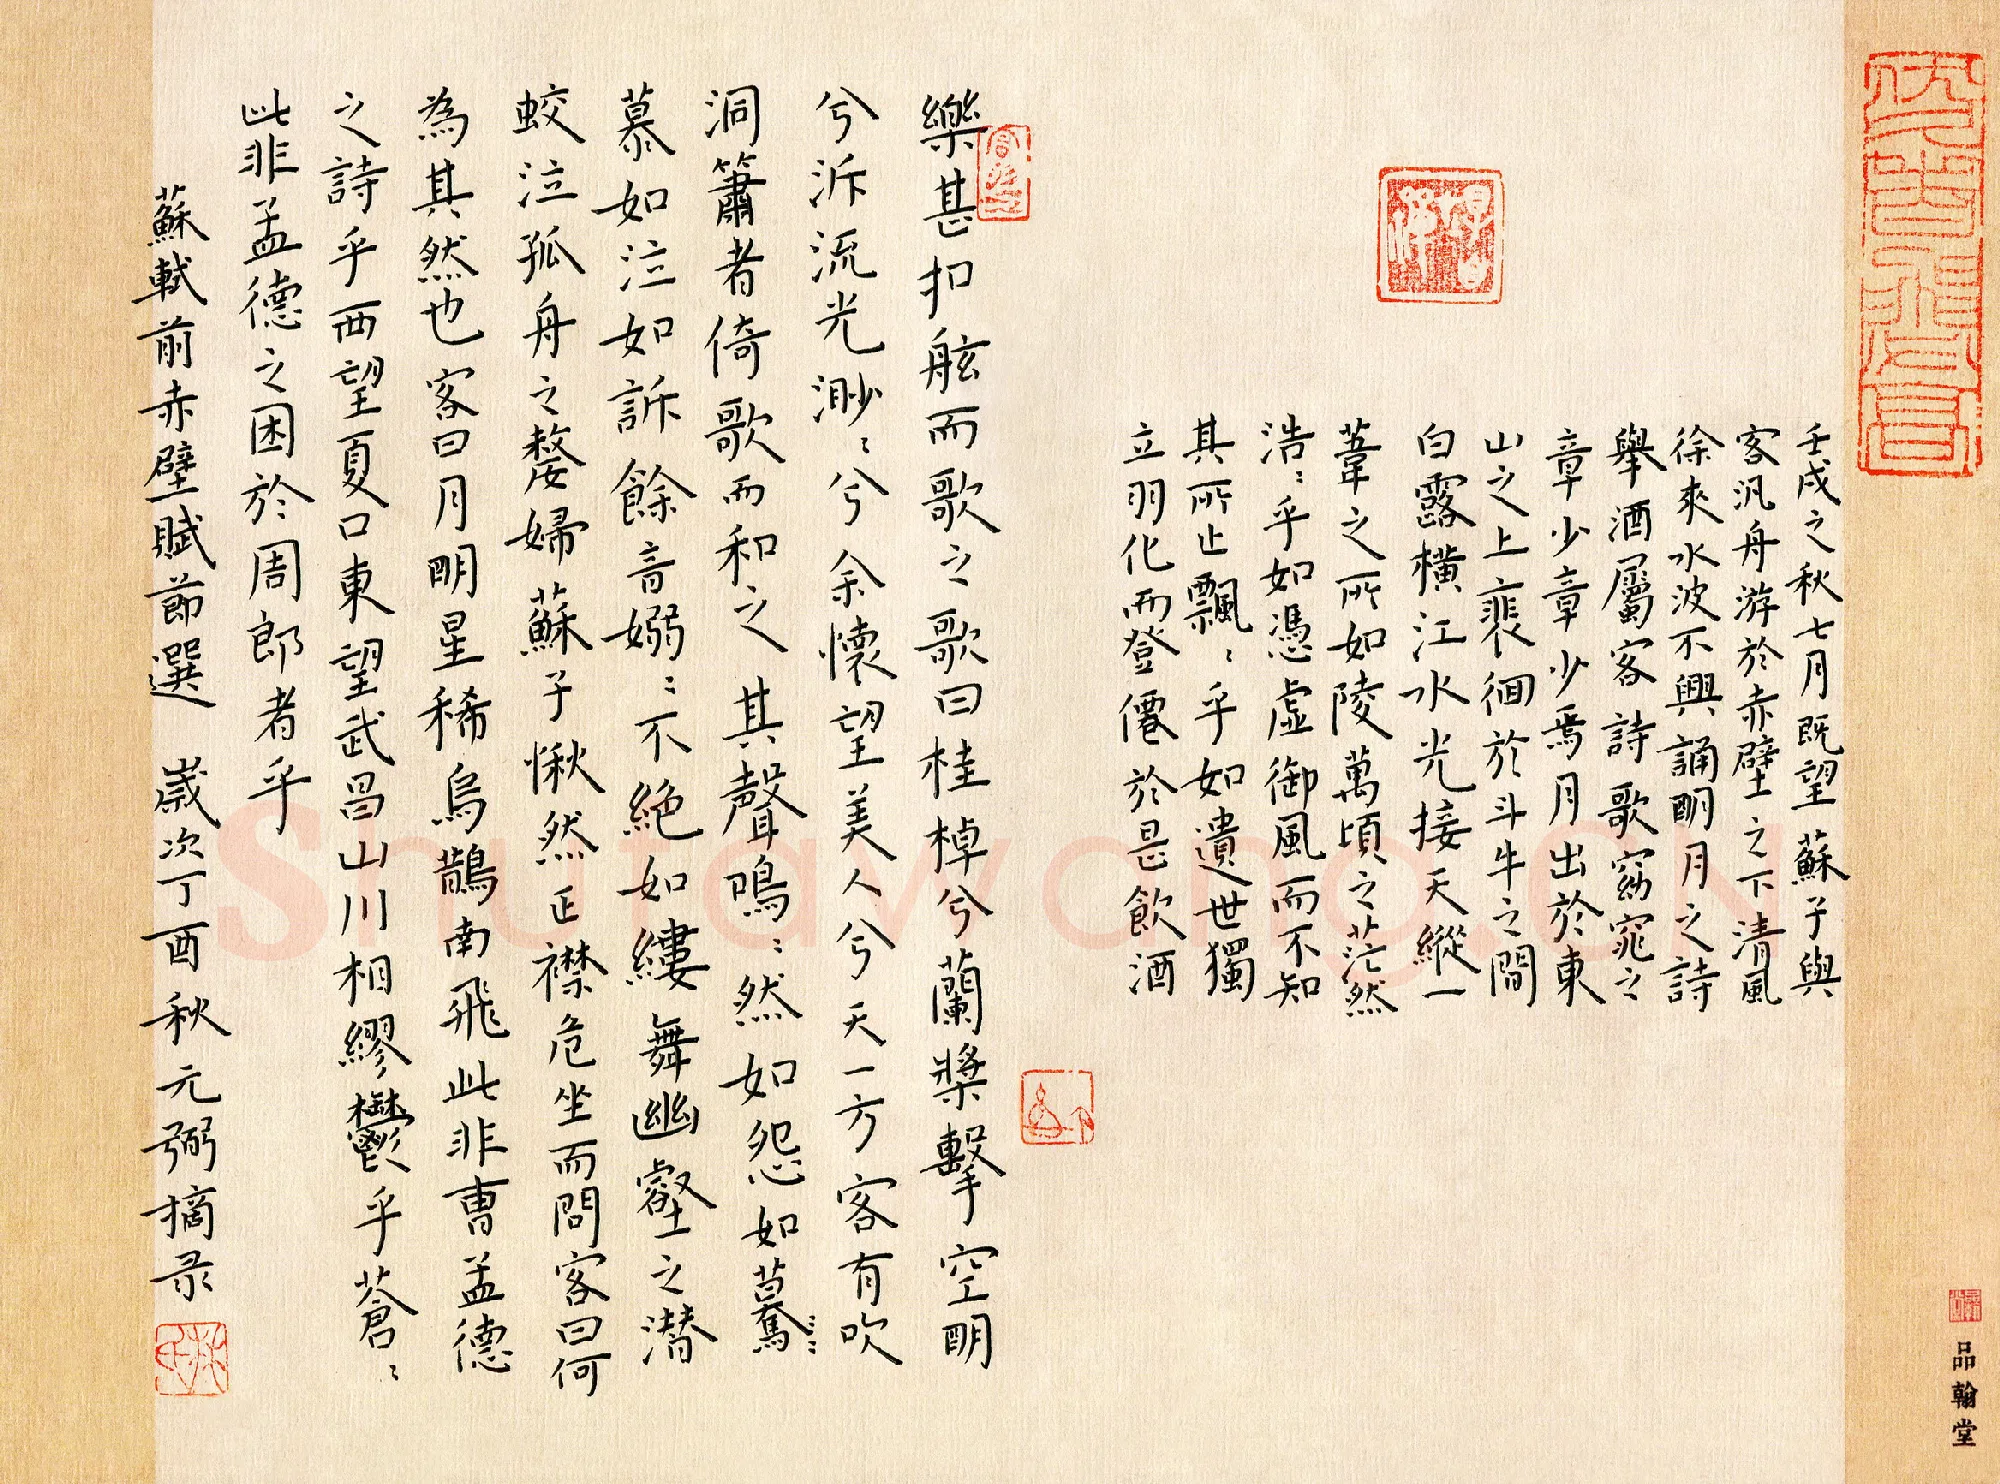 壬戌之秋七月既望蘇子與
客汎舟游於赤壁之下清風
徐來水波不興誦明月之詩
舉酒屬客詩歌窈窕之
章少章少焉月出於東
山之上裴徊於斗牛之間
白露橫江水光接天縱一
葦之所如陵萬頃之茫然
浩〻乎如憑虛御風而不知
其所止飄〻乎如遺世獨
立羽化而登僊於是飲酒
樂甚扣舷而歌之歌曰桂棹兮蘭槳擊空明
兮泝流光渺〻兮余懷望美人兮天一方客有吹
洞簫者倚歌而和之其聲嗚〻然如怨如驀
慕如泣如訴餘音嫋〻不絕如縷舞幽壑之潛
蛟泣孤舟之嫠婦蘇子愀然正襟危坐而問客曰何
為其然也客曰月明星稀烏鵲南飛此非曹孟德
之詩乎西望夏口東望武昌山川相繆鬱乎蒼〻
此非孟德之困於周郎者乎
蘇軾前赤壁賦節選 歲次丁酉秋元弼摘录
品翰堂
Shufawang.CN